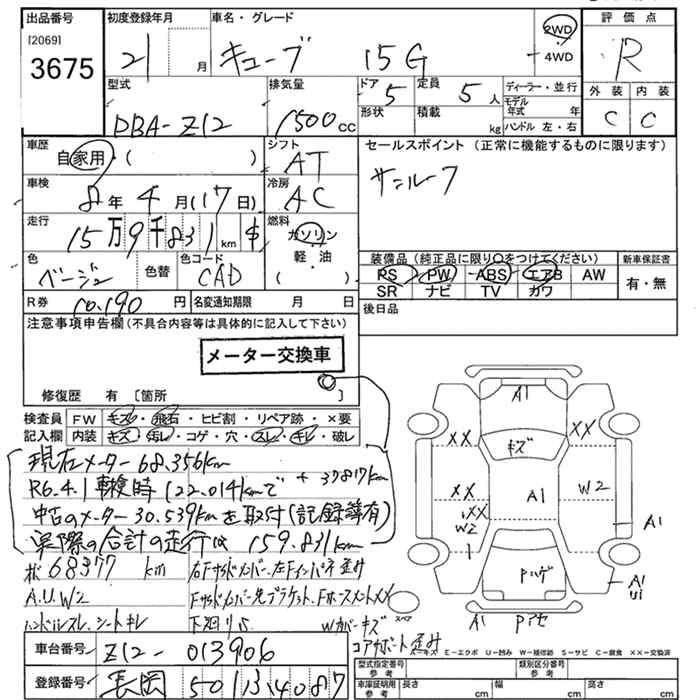 出品番号 初度登録年月 車名・グレード 評価点
[2069]
3675
21 月 キューブ 15G 2WD R
4WD
型式 排気量 ドア 定員 ディーラー・並行 外装 内装
DBA-Z12 1500cc 5 5人 モデル年式 年 C C
形状 積載 kg ハンドル 左・右
車歴 シフト セールスポイント (正常に機能するものに限ります)
自家用・( ) AT サンルーフ
車検 冷房
8年4月(17日) AC
走行 燃料
15万9千831km ガソリン
軽・油
( )
色 色替 色コード 装備品 (純正品に限り○をつけてください) 新車保証書
ベージュ CAD PS PW ABS エアB AW 有・無
SR ナビ TV カワ
R券 10,190円 名変通知期限 月 日 後日品
注意事項申告欄 (不具合内容等は具体的に記入して下さい)
メーター交換車
修復歴 有 〔箇所 〕
検査員 FW キズ・飛石・ヒビ割・リペア跡・×要
記入欄 内装 キズ・汚レ・コゲ・穴・スレ・キレ・破レ
現在メーター68.356km
R6.4.1車検時122.014kmで + 37817km
中古のメーター30.539kmを取付(記録簿有)
実際の合計の走行は 159.831km
68377 km 右Fサイドメンバー、左Fインパネ歪み
A.U.W2 Fサイドメンバー先ブラケット、Fホースメント××
ハンドルスレ、シートキレ 下廻りサビ Wカバーキズ
コアサポート歪み
A1
×× ××
キズ
×× A1 W2
××
W2 A1
Pハゲ A1
U1
スペア A1 Pアセ
W=キズ E=エクボ U=凹み W=補修跡 S=サビ C=腐食 ××=交換済
車台番号 Z12-013906
登録番号 長岡 501 3 4087
型式指定番号 参考 類別区分番号 参考
車庫証明用 参考 長さ cm 幅 cm 高さ cm